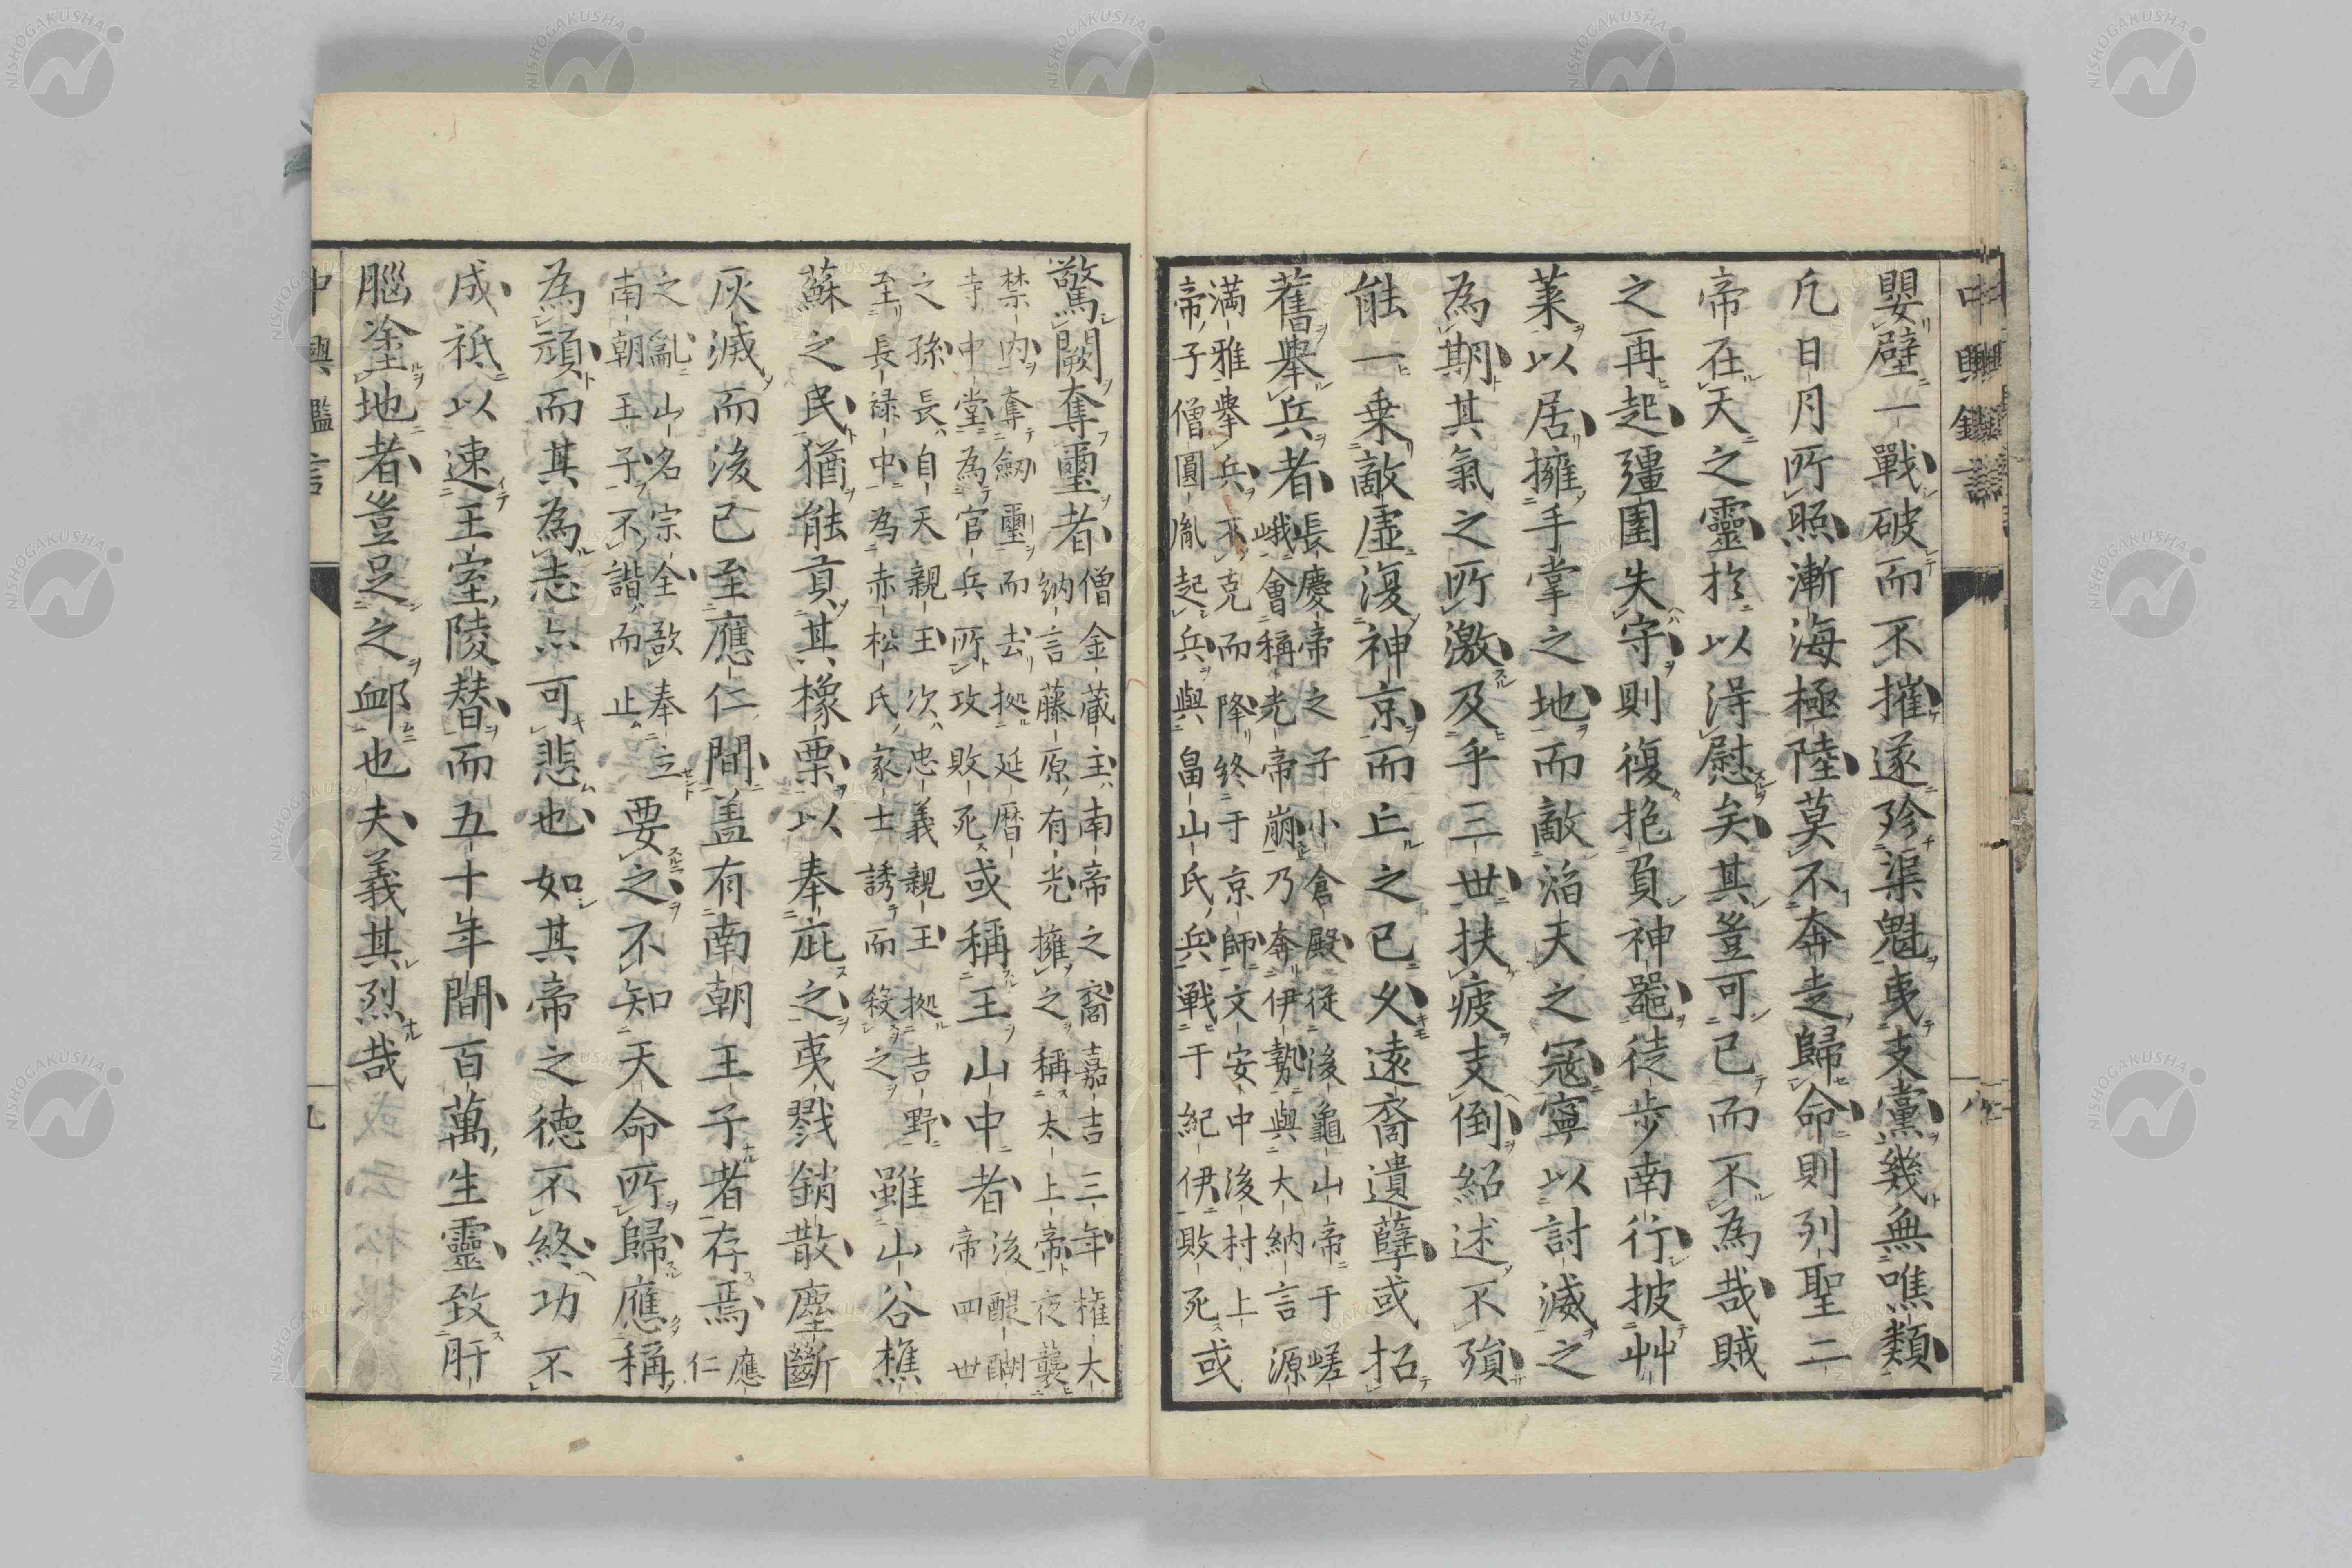 嬰壁一戰破而不摧遂殄渠魁夷支黨幾無噍類
凡日月所照漸海極陸莫不奔走歸命則列聖二
帝在天之靈於以得慰矣其豈可已而不為哉賊
之再起彊圉失守則復抱負神器徒歩南行披艸
萊以居擁手掌之地而敵滔天之寇寧以討滅之
為期其氣之所激及乎三世扶疲支倒紹述不殞
能一乗敵虛復神京而上之已久遠裔遺孽或招
舊舉兵者
長慶帝之子小倉殿従後龜山帝于嵯
峨會稱光帝崩乃奔伊勢與大納言源
満雅舉兵不克而降終于京師文安中後村上
帝子僧圓胤起兵與畠山氏兵戰于紀伊敗死
或
驚闕奪璽者
僧金蔵主南帝之裔嘉吉三年權大
納言藤原有光擁之稱太上帝夜襲
禁内奪劔璽而去拠延暦
寺中堂為官兵所攻敗死
或稱王山中者
後醍醐
帝四世
之孫長自天親王次忠義親王拠吉野
至長禄中為赤松氏家士誘而殺之
雖山谷樵
蘇之民猶能貢其橡栗以奉庇之夷戮銷散塵斷
灰滅而後已至應仁間蓋有南朝王子者存焉
應
仁
之亂山名宗全歆奉立
南朝王子不諧而止
要之不知天命所歸應稱
為頑而其為志亦可悲也如其帝之徳不終功不
成祇以速王室陵替而五十年間百萬生靈致肝
腦塗地者豈足之卹也夫義其烈哉
中興鑑言
八
中興鑑言
九
NISHOGAKUSHA